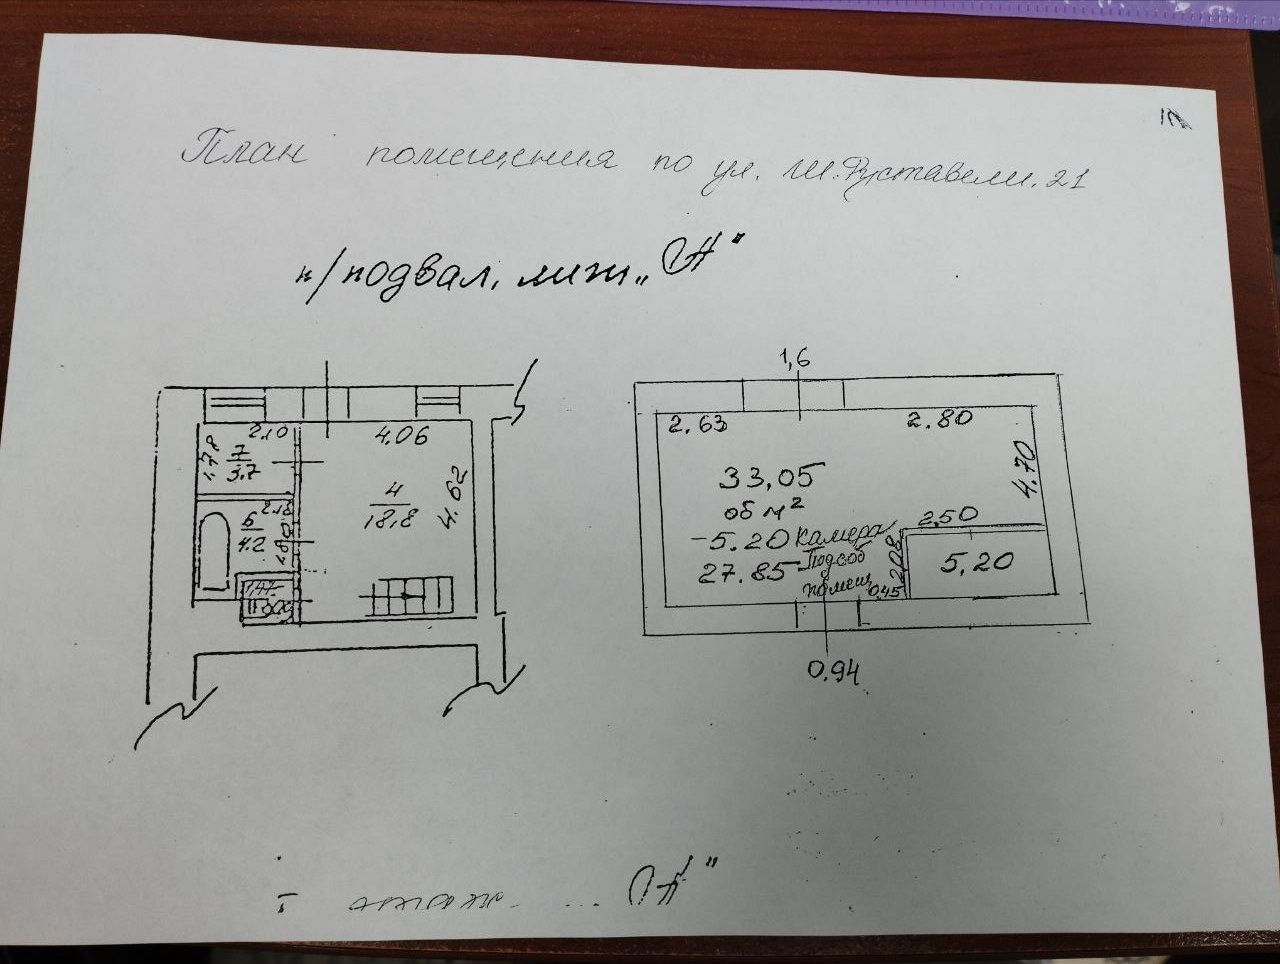 План помещения по ул. Ш. Руставели. 21
п/подвал, лит „А"
2.10
1.78
7
3.7
4.06
4
18,8
4.62
6
4.2
2.18
1,6
2.63
2.80
4.70
33,05
об м²
-5.20 камера
27.85 Подсоб
помещ
2,50
2.08
0,45
5,20
0.94
I этаж „А"